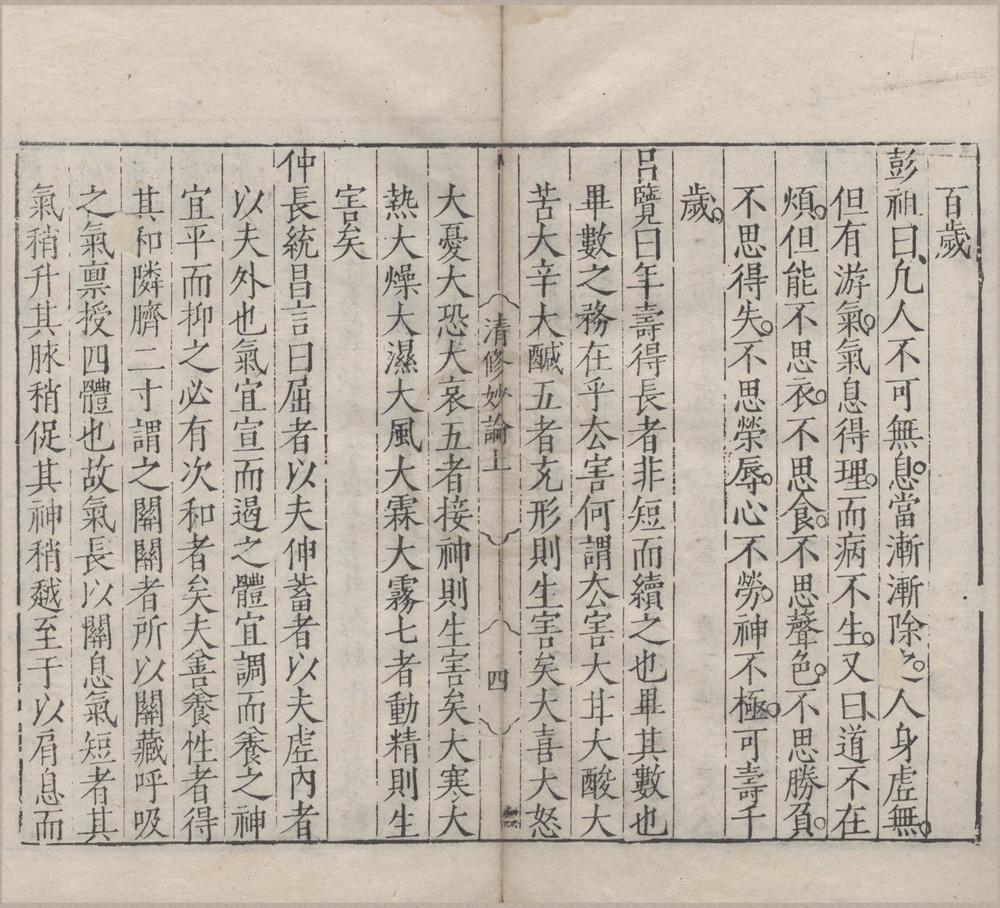 百歲
彭祖曰、凢人不可無息。當漸漸除之。人身虛無。
但有游氣。氣息得理。而病不生。又曰、道不在
煩。但能不思衣。不思食。不思聲色。不思勝負。
不思得失。不思榮辱。心不勞。神不極。可壽千
歲。
呂覽曰年壽得長者非短而續之也畢其數也
畢數之務在乎去害何謂去害大甘大酸大
苦大辛大醎五者充形則生害矣大喜大怒
清修妙論上
四
大憂大恐大哀五者接神則生害矣大寒大
熱大燥大濕大風大霖大霧七者動精則生
害矣
仲長統昌言曰屈者以夫伸蓄者以夫虛內者
以夫外也氣宜宣而遏之體宜調而養之神
宜平而抑之必有次和者矣夫善養性者得
其和隣臍二寸謂之關關者所以關藏呼吸
之氣禀授四體也故氣長以關息氣短者其
氣稍升其脉稍促其神稍越至于以肩息而